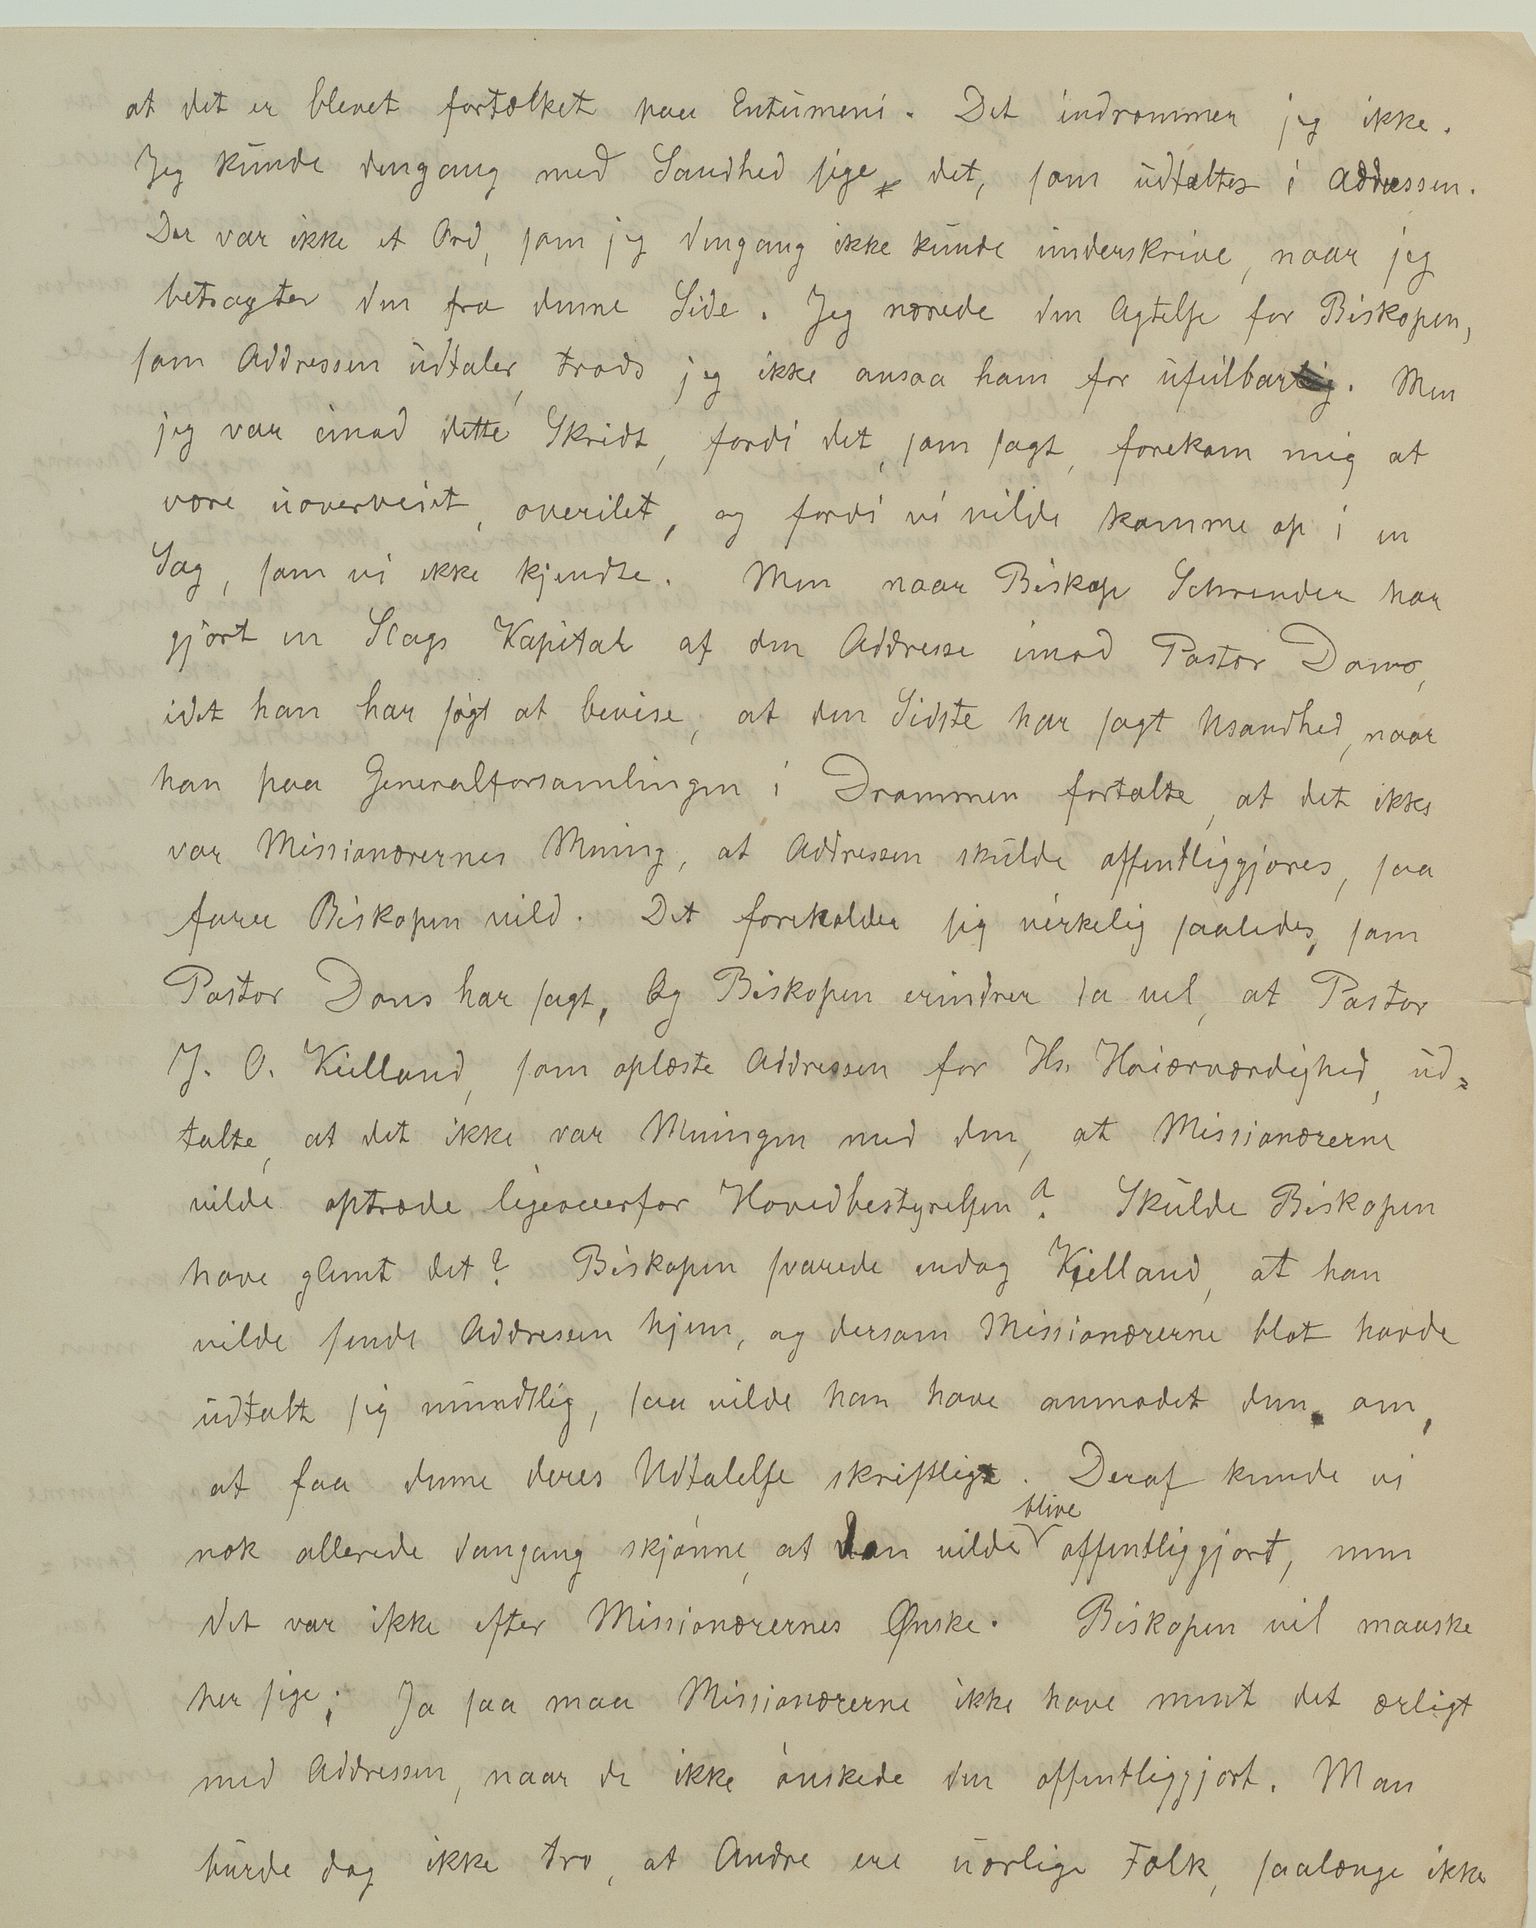 at det er blevet fortolket paa Entumeni. Det indrømmer jeg ikke.
Jeg kunde dengang med Sandhed sige det, som udtaltes i Addressen.
Der var ikke et Ord, som jeg dengang ikke kunde underskrive, naar jeg
betragter den fra denne Side. Jeg nærede den Agtelse for Biskopen,
som Addressen udtaler, trods jeg ikke ansaa ham for ufeilbar. Men
jeg var imod dette Skridt, fordi det, som sagt, forekom mig at
være uoverveiet, overilet, og fordi vi vilde komme op i en
Sag, som vi ikke kjendte. Men naar Biskop Schreuder har
gjort en Slags Kapital af den Addresse imod Pastor Dons,
idet han har søgt at bevise, at den Sidste har sagt Usandhed, naar
han paa Generalforsamlingen i Drammen fortalte, at det ikke
var Missionærernes Mening, at Addressen skulde offentliggjøres, saa
farer Biskopen vild. Det forholder sig virkelig saaledes, som
Pastor Dons har sagt. Og Biskopen erindrer da vel, at Pastor
J. O. Kielland, som oplæste Addressen for Hs. Høiærværdighed, ud=
talte, at det ikke var Meningen med den, at Missionærerne
vilde optræde ligeoverfor Hovedbestyrelsen? Skulde Biskopen
have glemt det? Biskopen svarede endog Kielland, at han
vilde sende Addressen hjem, og dersom Missionærerne blot havde
udtalt sig mundtlig, saa vilde han have anmodet dem om,
at faa denne deres Udtalelse skriftlig. Deraf kunde vi
nok allerede dengang skjønne, at den vilde blive offentliggjort, men
det var ikke efter Missionærernes Ønske. Biskopen vil maaske
her sige: Ja saa maa Missionærerne ikke have ment det ærligt
med Addressen, naar de ikke ønskede den offentliggjort. Man
burde dog ikke tro, at Andre ere uærlige Folk, saalænge ikke